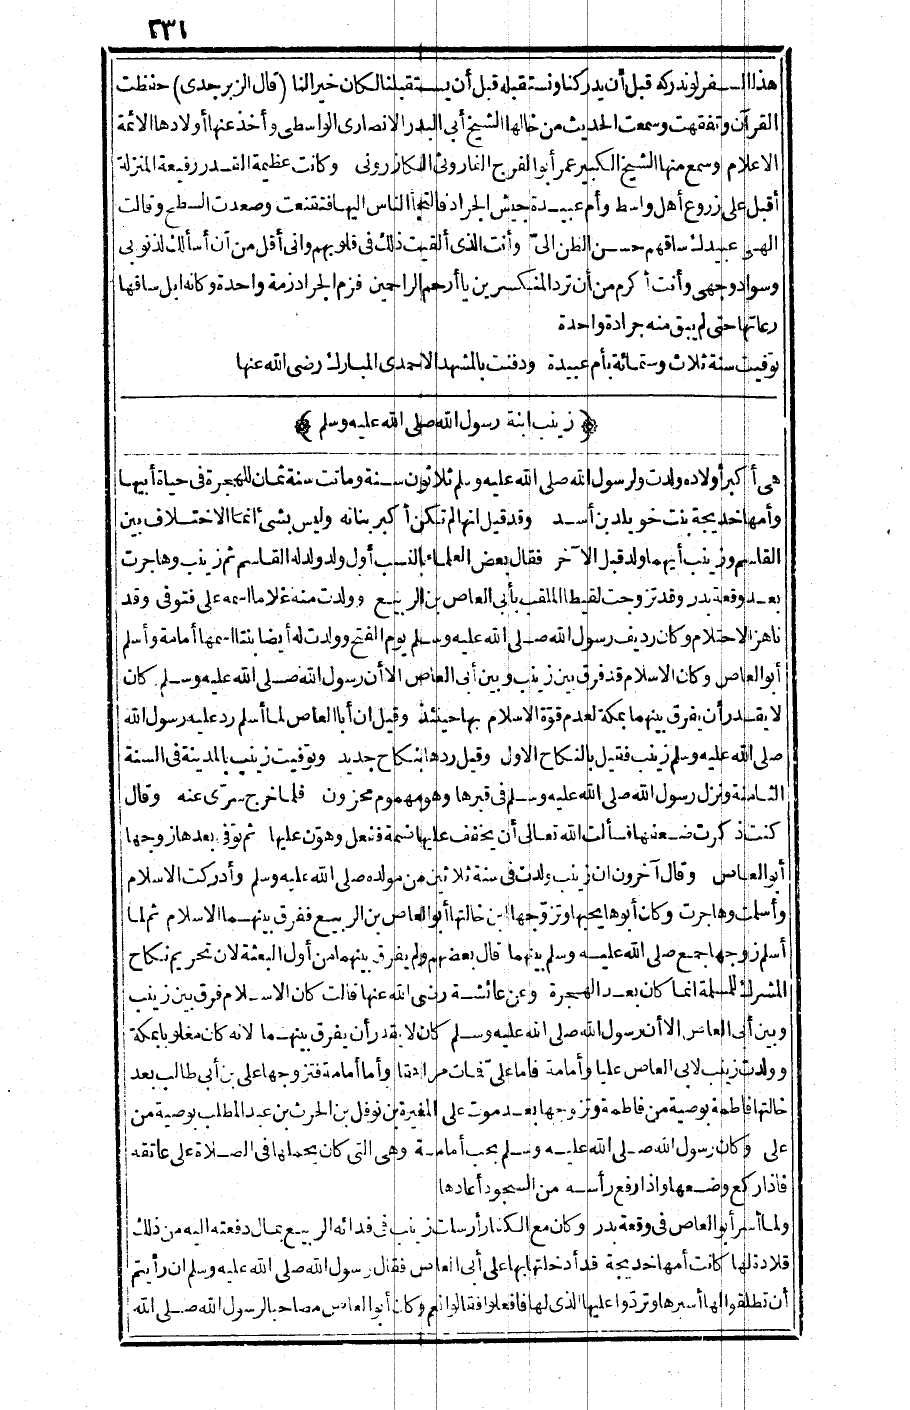 ٢٣١
هذا السفر لو ندركه قبل أن يدركنا ونستقبله قبل أن يستقبلنا لكان خيرا لنا (قال الزبرجدى) حفظت
القرآن وتفقهت وسمعت الحديث من خالها الشيخ أبى البدر الانصارى الواسطى وأخذ عنها أولادها الائمة
الاعلام وسمع منها الشيخ الكبير عمر أبو الفرج الفاروثى الكازرونى وكانت عظيمة القدر رفيعة المنزلة
أقبل على زروع أهل واسط وأم عبيدة جيش الجراد فالتجأ الناس اليها فتقنعت وصعدت السطح وقالت
الهى عبيدك ساقهم حسن الظن الىّ وأنت الذى ألقيت ذلك فى قلوبهم وانى أقل من أن أسألك لذنوبى
وسواد وجهى وأنت أكرم من أن ترد المنكسرين يا أرحم الراحمين فزم الجراد زمة واحدة وكانه ابل ساقها
رعاتها حتى لم يبق منه جرادة واحدة
توفيت سنة ثلاث وستمائة بأم عبيدة ودفنت بالمشهد الاحمدى المبارك رضى الله عنها
﴿ زينب ابنة رسول الله صلى الله عليه وسلم ﴾
هى أكبر أولاده ولدت ولرسول الله صلى الله عليه وسلم ثلاثون سنة وماتت سنة ثمان للهجرة فى حياة أبيها
وأمها خديجة بنت خويلد بن أسد وقد قيل انها لم تكن أكبر بناته وليس بشئ انما الاختلاف بين
القاسم وزينب أيهما ولد قبل الآخر فقال بعض العلماء بالنسب أول ولد ولد له القاسم ثم زينب وهاجرت
بعد وقعة بدر وقد تزوجت لقيط الملقب بأبى العاص بن الربيع وولدت منه غلاما اسمه على فتوفى وقد
ناهز الاحتلام وكان رديف رسول الله صلى الله عليه وسلم يوم الفتح وولدت له أيضا بنتا اسمها أمامة وأسلم
أبو العاص وكان الاسلام قد فرق بين زينب وبين أبى العاص الا أن رسول الله صلى الله عليه وسلم كان
لا يقدر أن يفرق بينهما بمكة لعدم قوة الاسلام بها حينئذ وقيل ان أبا العاص لما أسلم رد عليه رسول الله
صلى الله عليه وسلم زينب فقيل بالنكاح الاول وقيل ردها بنكاح جديد وتوفيت زينب بالمدينة فى السنة
الثامنة ونزل رسول الله صلى الله عليه وسلم فى قبرها وهو مهموم محزون فلما خرج سرّى عنه وقال
كنت ذكرت ضعفها فسألت الله تعالى أن يخفف عليها ضمة ففعل وهوّن عليها ثم توفى بعدها زوجها
أبو العاص وقال آخرون ان زينب ولدت فى سنة ثلاثين من مولده صلى الله عليه وسلم وأدركت الاسلام
وأسلمت وهاجرت وكان أبوها يحبها وتزوّجها ابن خالتها أبو العاص بن الربيع ففرق بينهما الاسلام ثم لما
أسلم زوجها جمع صلى الله عليه وسلم بينهما قال بعضهم ولم يفرق بينهما من أول البعثة لان تحريم نكاح
المشرك للمسلمة انما كان بعد الهجرة وعن عائشة رضى الله عنها قالت كان الاسلام فرق بين زينب
وبين أبى العاص الا أن رسول الله صلى الله عليه وسلم كان لا يقدر أن يفرق بينهما لانه كان مغلوبا بمكة
وولدت زينب لابى العاص عليا وأمامة فاما علىّ فمات مراهقا وأما أمامة فتزوجها على بن أبى طالب بعد
خالتها فاطمة بوصية من فاطمة وتزوجها بعد موت على المغيرة بن نوفل بن الحرث بن عبد المطلب بوصية من
على وكان رسول الله صلى الله عليه وسلم يحب أمامة وهى التى كان يحملها فى الصلاة على عاتقه
فاذا ركع وضعها واذا رفع رأسه من السجود أعادها
ولما أسر أبو العاص فى وقعة بدر وكان مع الكفار أرسلت زينب فى فدائه الربيع بمال دفعته اليه من ذلك
قلادة لها كانت أمها خديجة قد أدخلتها بها على أبى العاص فقال رسول الله صلى الله عليه وسلم ان رأيتم
أن تطلقوا لها أسيرها وتردّوا عليها الذى لها فافعلوا فقالوا نعم وكان أبو العاص مصاحبا لرسول الله صلى الله